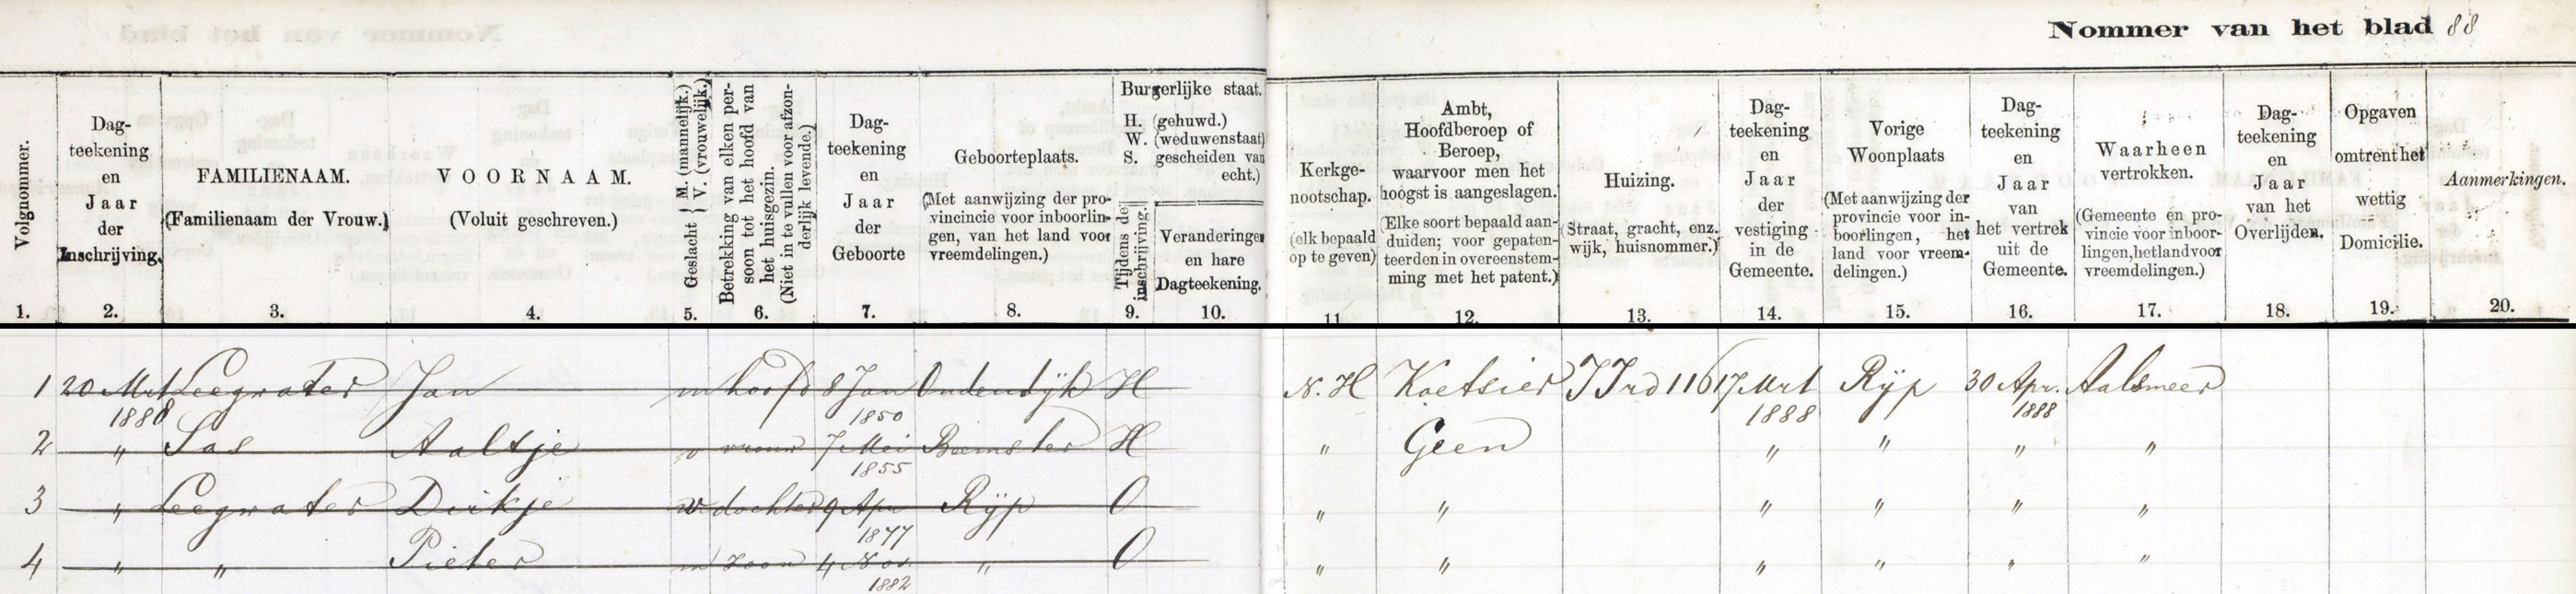 Nommer van het blad 88
Volgnommer.
1.
Dag-
teekening
en
Jaar
der
Inschrijving.
2.
FAMILIENAAM.
(Familienaam der Vrouw.)
3.
VOORNAAM.
(Voluit geschreven.)
4.
Geslacht { M. (mannelijk.)
V. (vrouwelijk.)
5.
Betrekking van elken per-
soon tot het hoofd van
het huisgezin.
(Niet in te vullen voor afzon-
derlijk levende.)
6.
Dag-
teekening
en
Jaar
der
Geboorte
7.
Geboorteplaats.
(Met aanwijzing der pro-
vincincie voor inboorlin-
gen, van het land voor
vreemdelingen.)
8.
Burgerlijke staat.
H. (gehuwd.)
W. (weduwenstaat)
S. gescheiden van
echt.)
Tijdens de
inschrijving.
9.
Veranderingen
en hare
Dagteekening.
10.
Kerkge-
nootschap.
(elk bepaald
op te geven)
11
Ambt,
Hoofdberoep of
Beroep,
waarvoor men het
hoogst is aangeslagen.
(Elke soort bepaald aan-
duiden; voor gepaten-
teerden in overeenstem-
ming met het patent.)
12.
Huizing.
(Straat, gracht, enz.
wijk, huisnommer.)
13.
Dag-
teekening
en
Jaar
der
vestiging
in de
Gemeente.
14.
Vorige
Woonplaats
(Met aanwijzing der
provincie voor in-
boorlingen, het
land voor vreem-
delingen.)
15.
Dag-
teekening
en
Jaar
van
het vertrek
uit de
Gemeente.
16.
Waarheen
vertrokken.
(Gemeente en pro-
vincie voor inboor-
lingen, het land voor
vreemdelingen.)
17.
Dag-
teekening
en
Jaar
van het
Overlijden.
18.
Opgaven
omtrent het
wettig
Domicilie.
19.
Aanmerkingen.
20.
1 20 Mrt 1888 Leegwater Jan m hoofd 8 Jan 1850 Oudendijk H N. H Koetsier 116 17 Mrt 1888 Rijp 30 Apr. 1888 Aalsmeer
2 " Sas Aaltje v vrouw 7 Mei 1855 Beemster H " Geen " " " "
3 " Leegwater Dirkje v dochter 9 Apr 1877 Rijp O " " " " " "
4 " " Pieter m zoon 4 Nov. 1882 " O " " " " " "